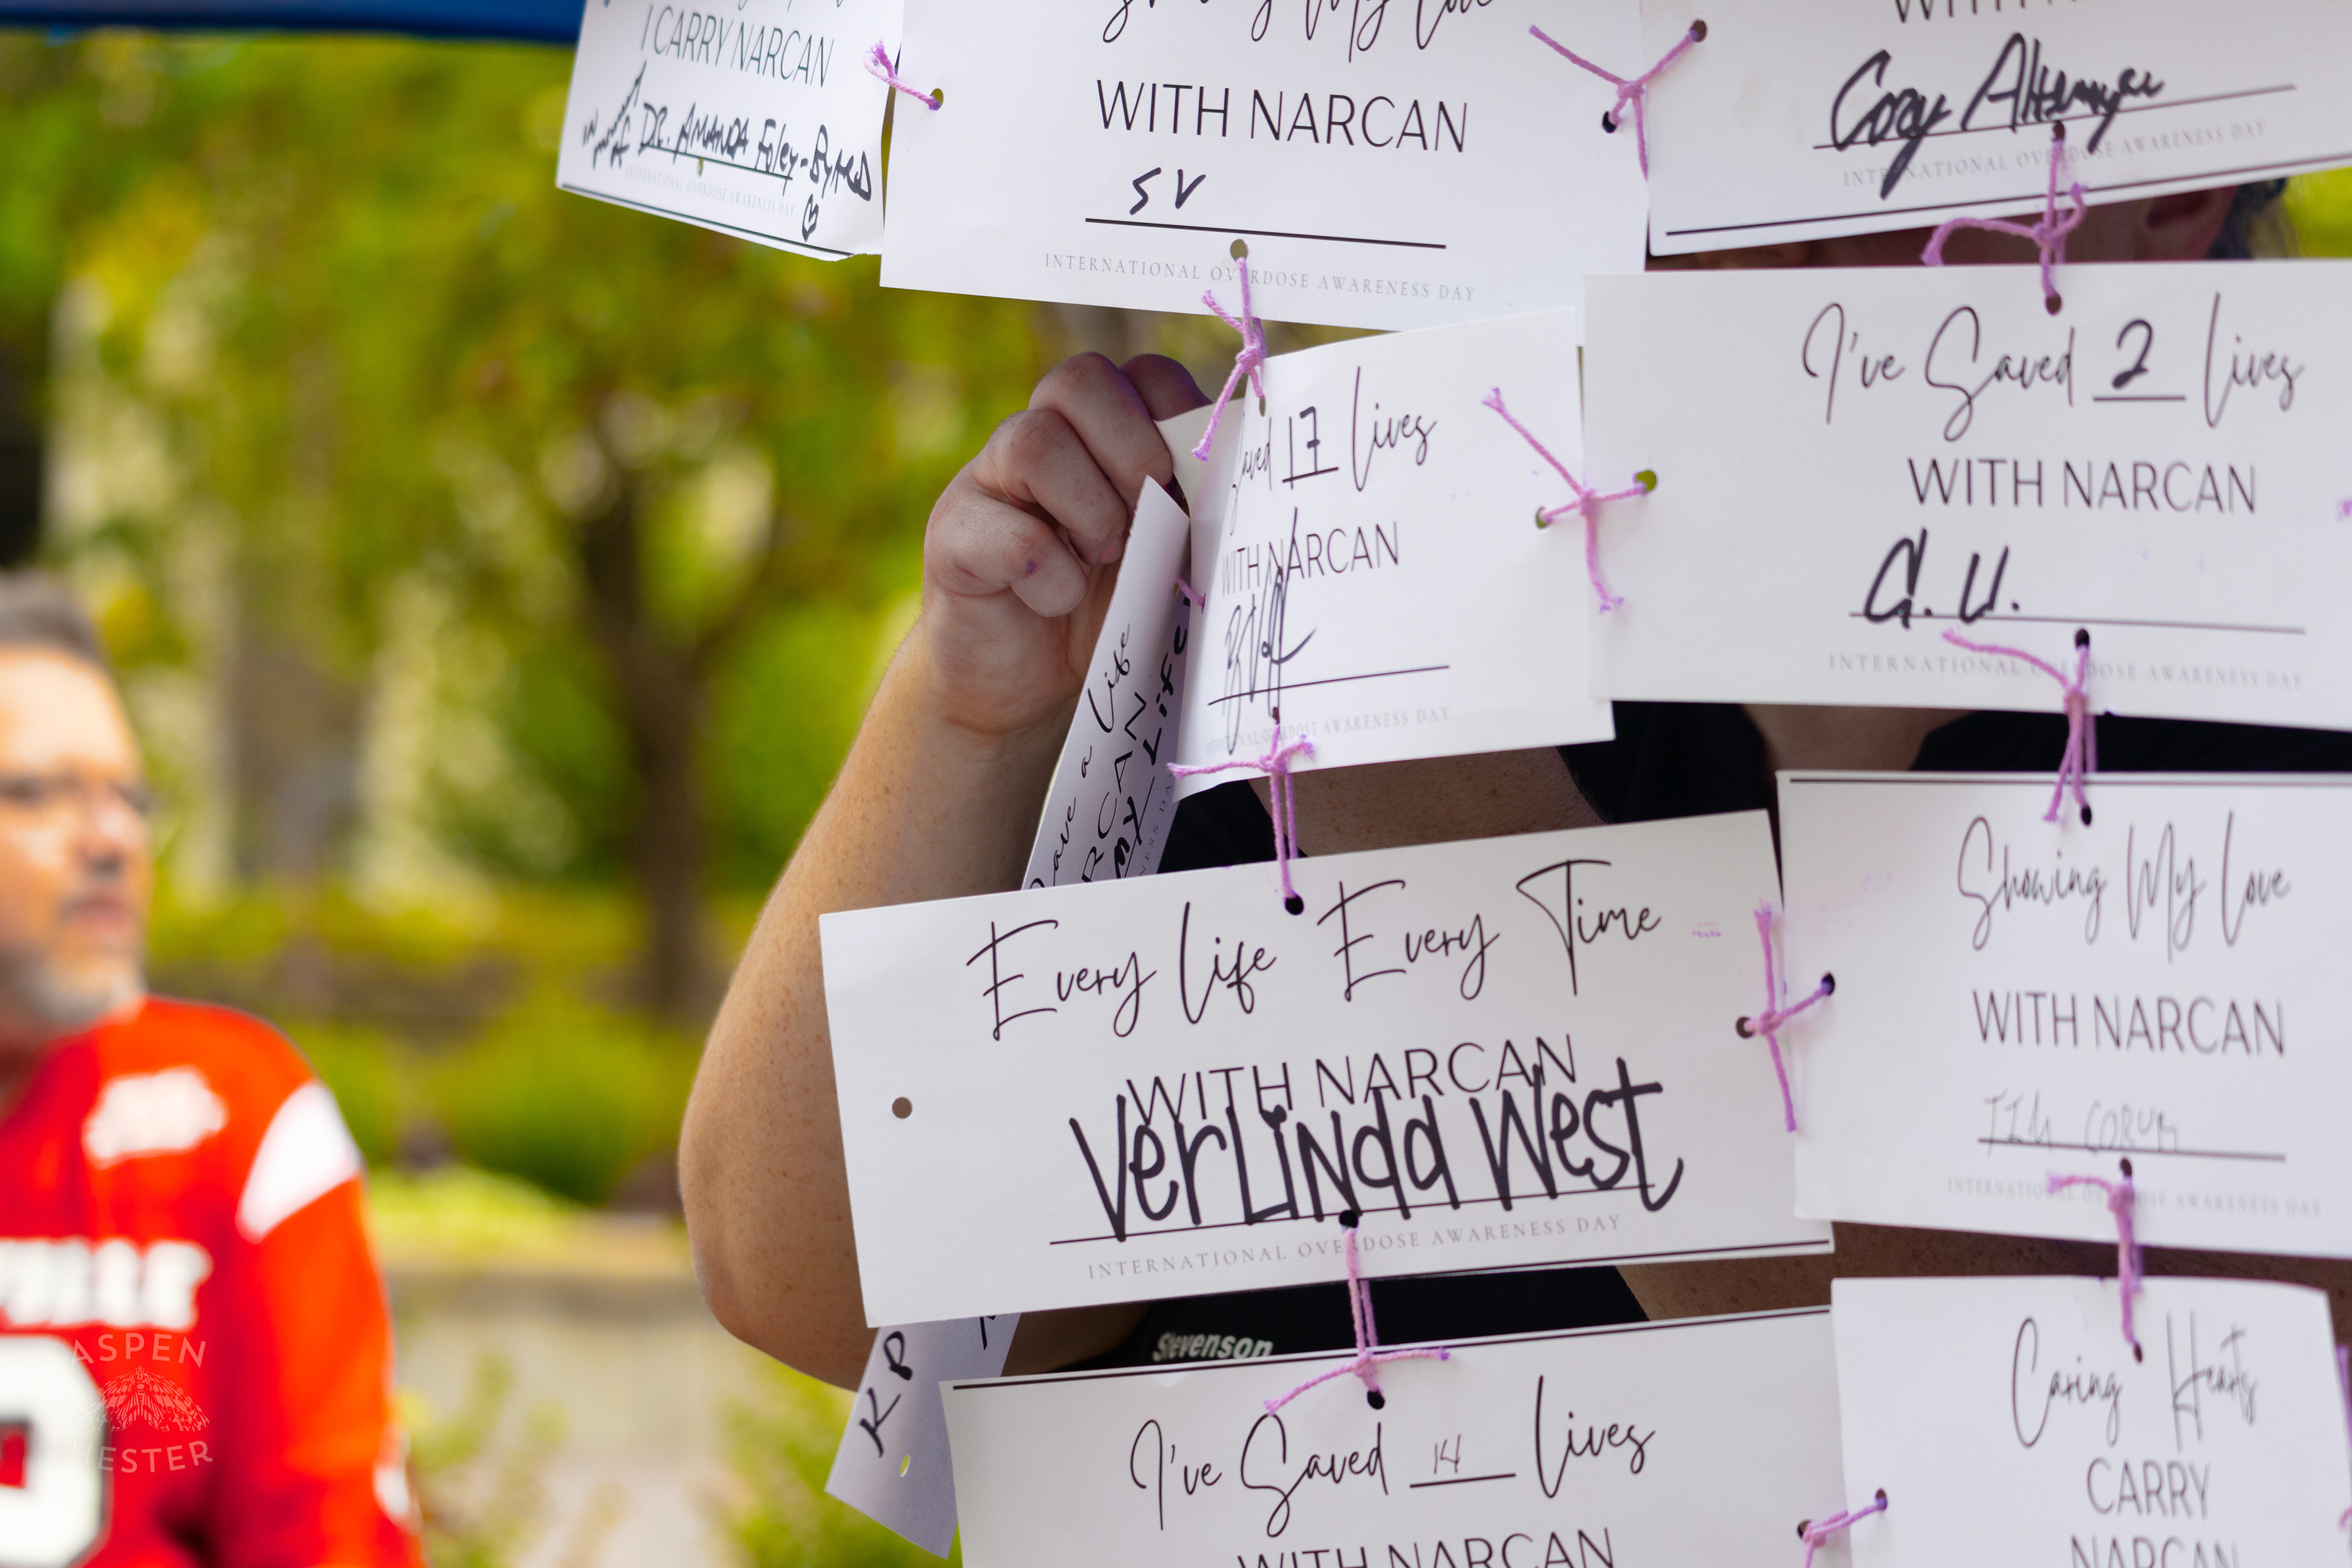 I CARRY NARCAN
DR. AMANDA Foley-Byrd
INTERNATIONAL OVERDOSE AWARENESS DAY
Showing My Love
WITH NARCAN
SV
INTERNATIONAL OVERDOSE AWARENESS DAY
Cory
INTERNATIONAL OVERDOSE AWARENESS DAY
Saved 17 Lives
WITH NARCAN
INTERNATIONAL OVERDOSE AWARENESS DAY
I've Saved 2 Lives
WITH NARCAN
G. U.
INTERNATIONAL OVERDOSE AWARENESS DAY
Save a Life
NARCAN
my Life
Every Life Every Time
WITH NARCAN
VerLinda West
INTERNATIONAL OVERDOSE AWARENESS DAY
Showing My Love
WITH NARCAN
TIM CORUM
INTERNATIONAL OVERDOSE AWARENESS DAY
Stevenson
KP
I've Saved 14 Lives
WITH NARCAN
Caring Hearts
CARRY
NARCAN
VILLE
ASPEN
HESTER